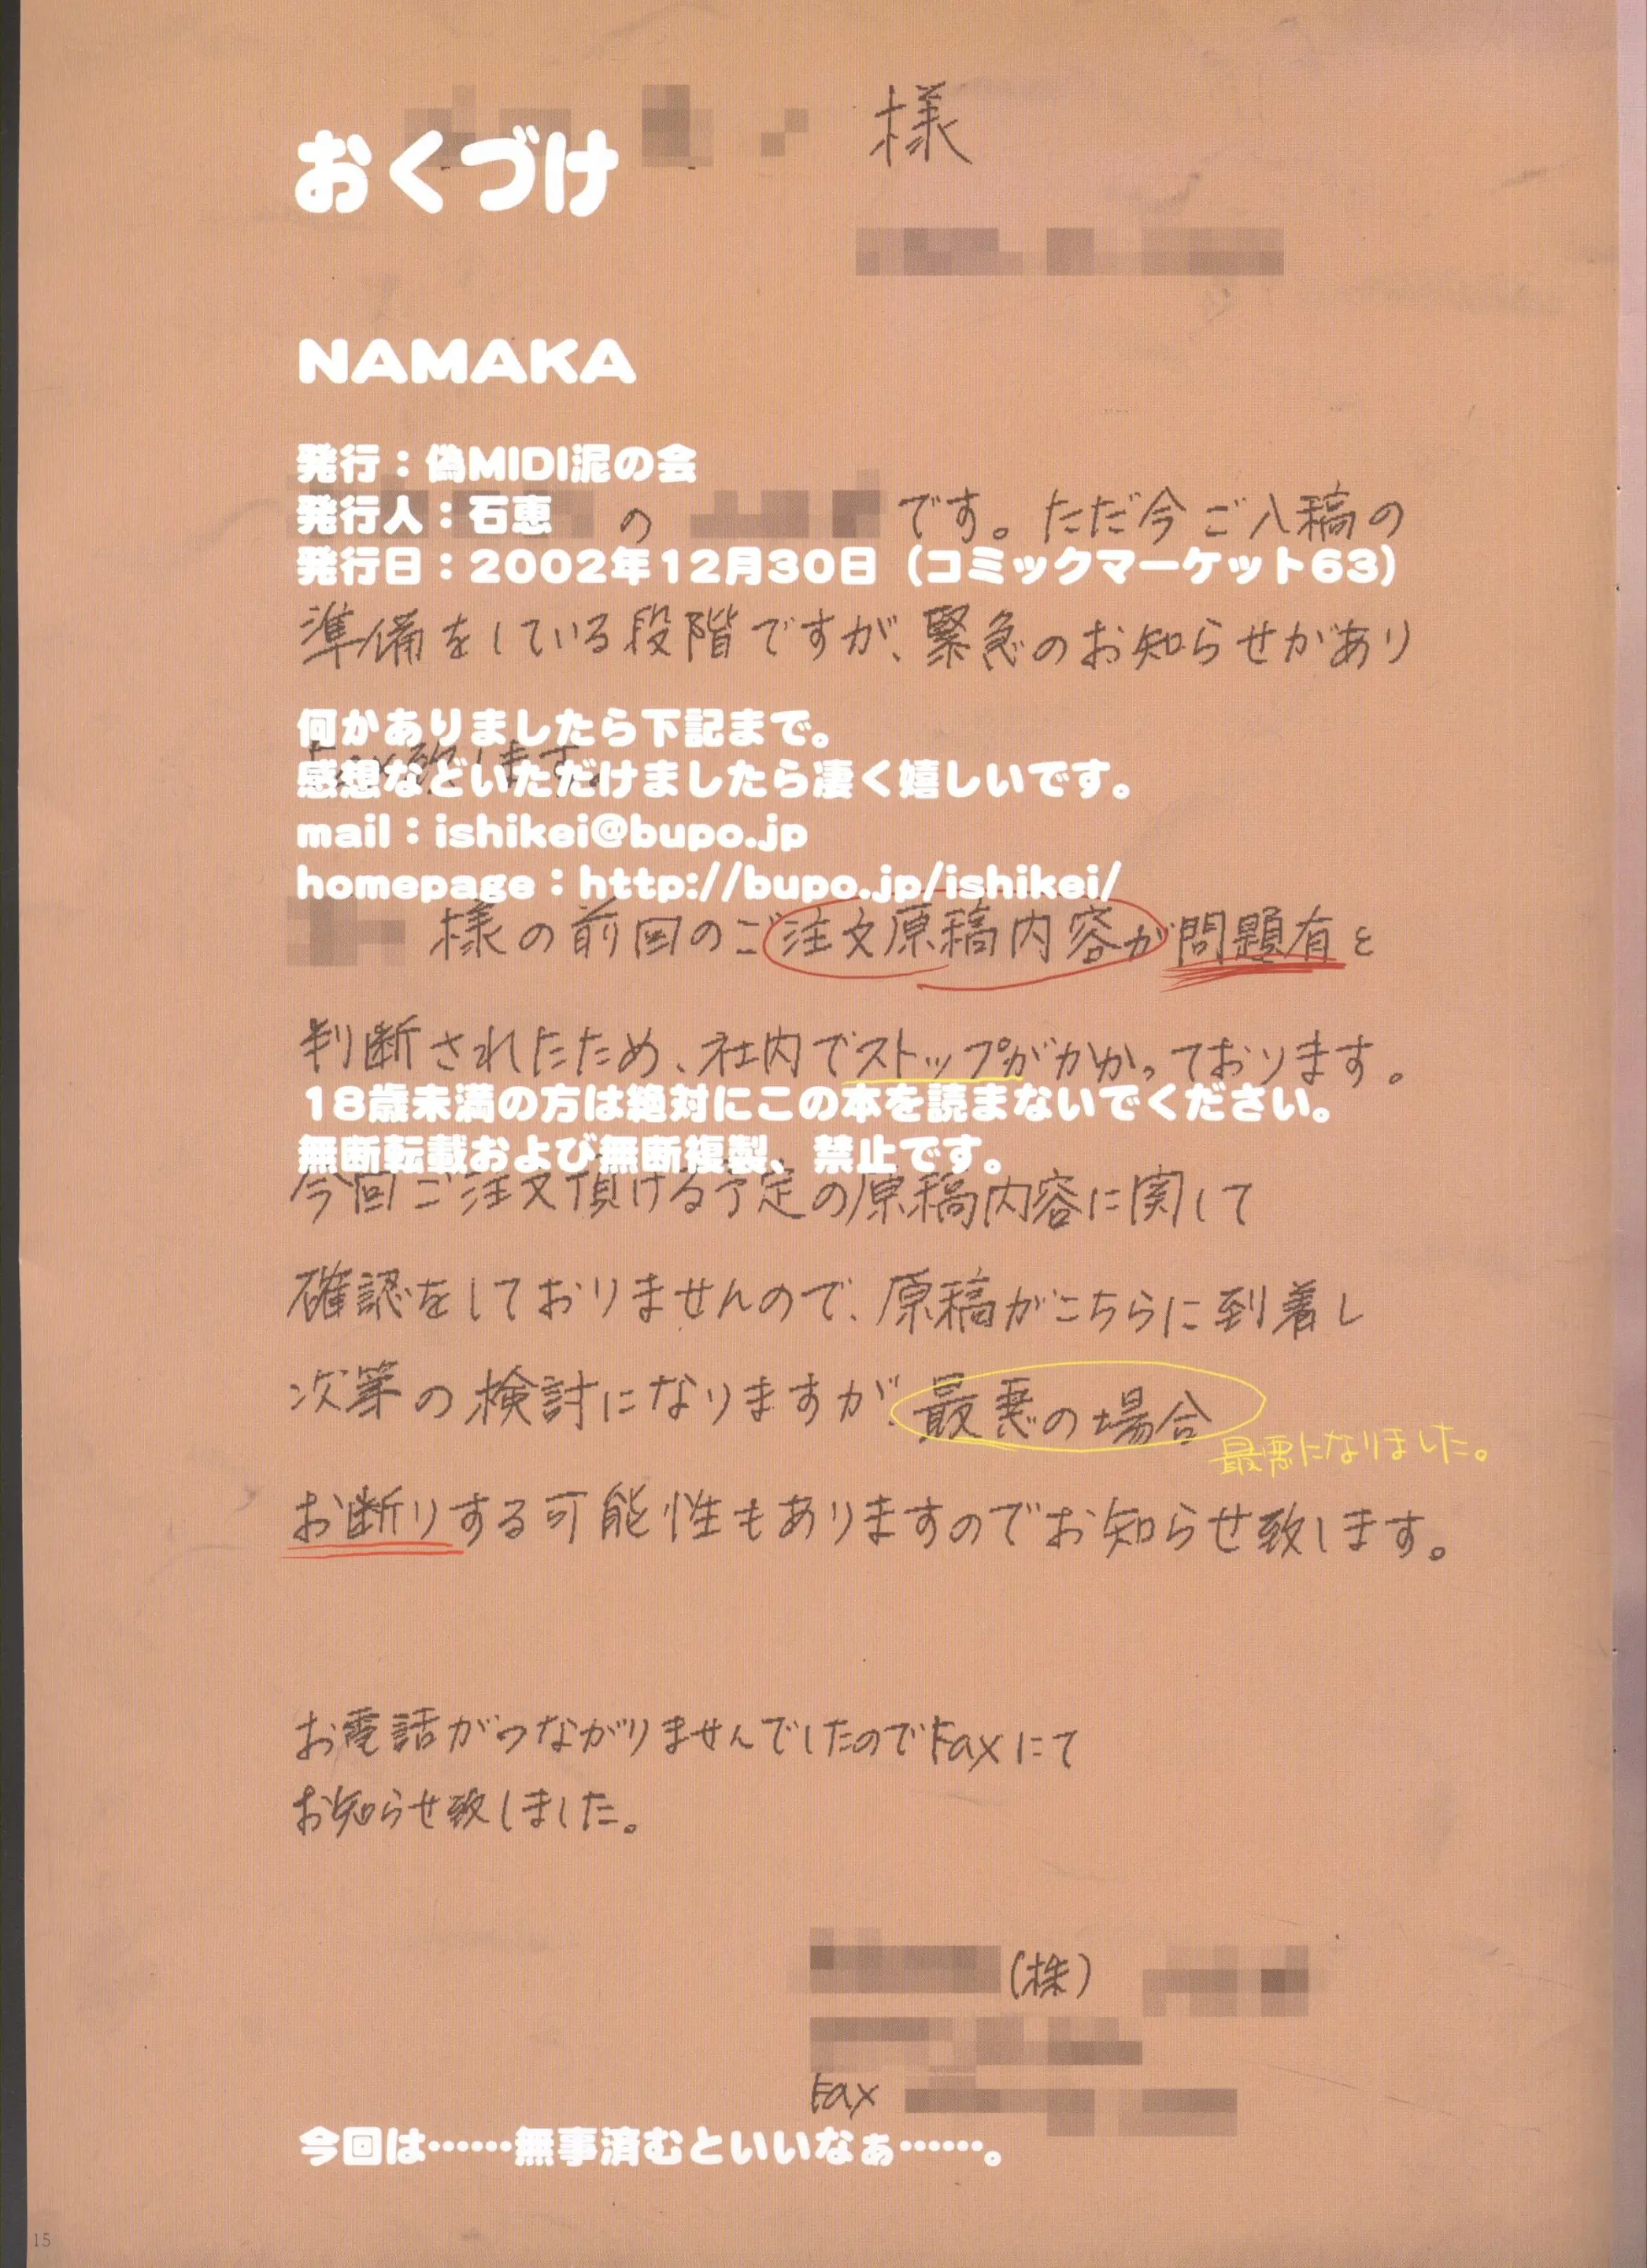 様
おくづけ
NAMAKA
発行：偽MIDI泥の会
発行人：石恵
の です。ただ今ご入稿の
発行日：2002年12月30日（コミックマーケット63）
準備をしている段階ですが、緊急のお知らせがあり
何かありましたら下記まで。
致します。
感想などいただけましたら凄く嬉しいです。
mail：ishikei@bupo.jp
homepage：http://bupo.jp/ishikei/
様の前回のご注文原稿内容が問題有と
判断されたため、社内でストップがかかっております。
18歳未満の方は絶対にこの本を読まないでください。
無断転載および無断複製、禁止です。
今回ご注文頂ける予定の原稿内容に関して
確認をしておりませんので、原稿がこちらに到着し
次第の検討になりますが、最悪の場合
最悪になりました。
お断りする可能性もありますのでお知らせ致します。
お電話がつながりませんでしたのでFaxにて
お知らせ致しました。
(株)
Fax
今回は……無事済むといいなぁ……。
15